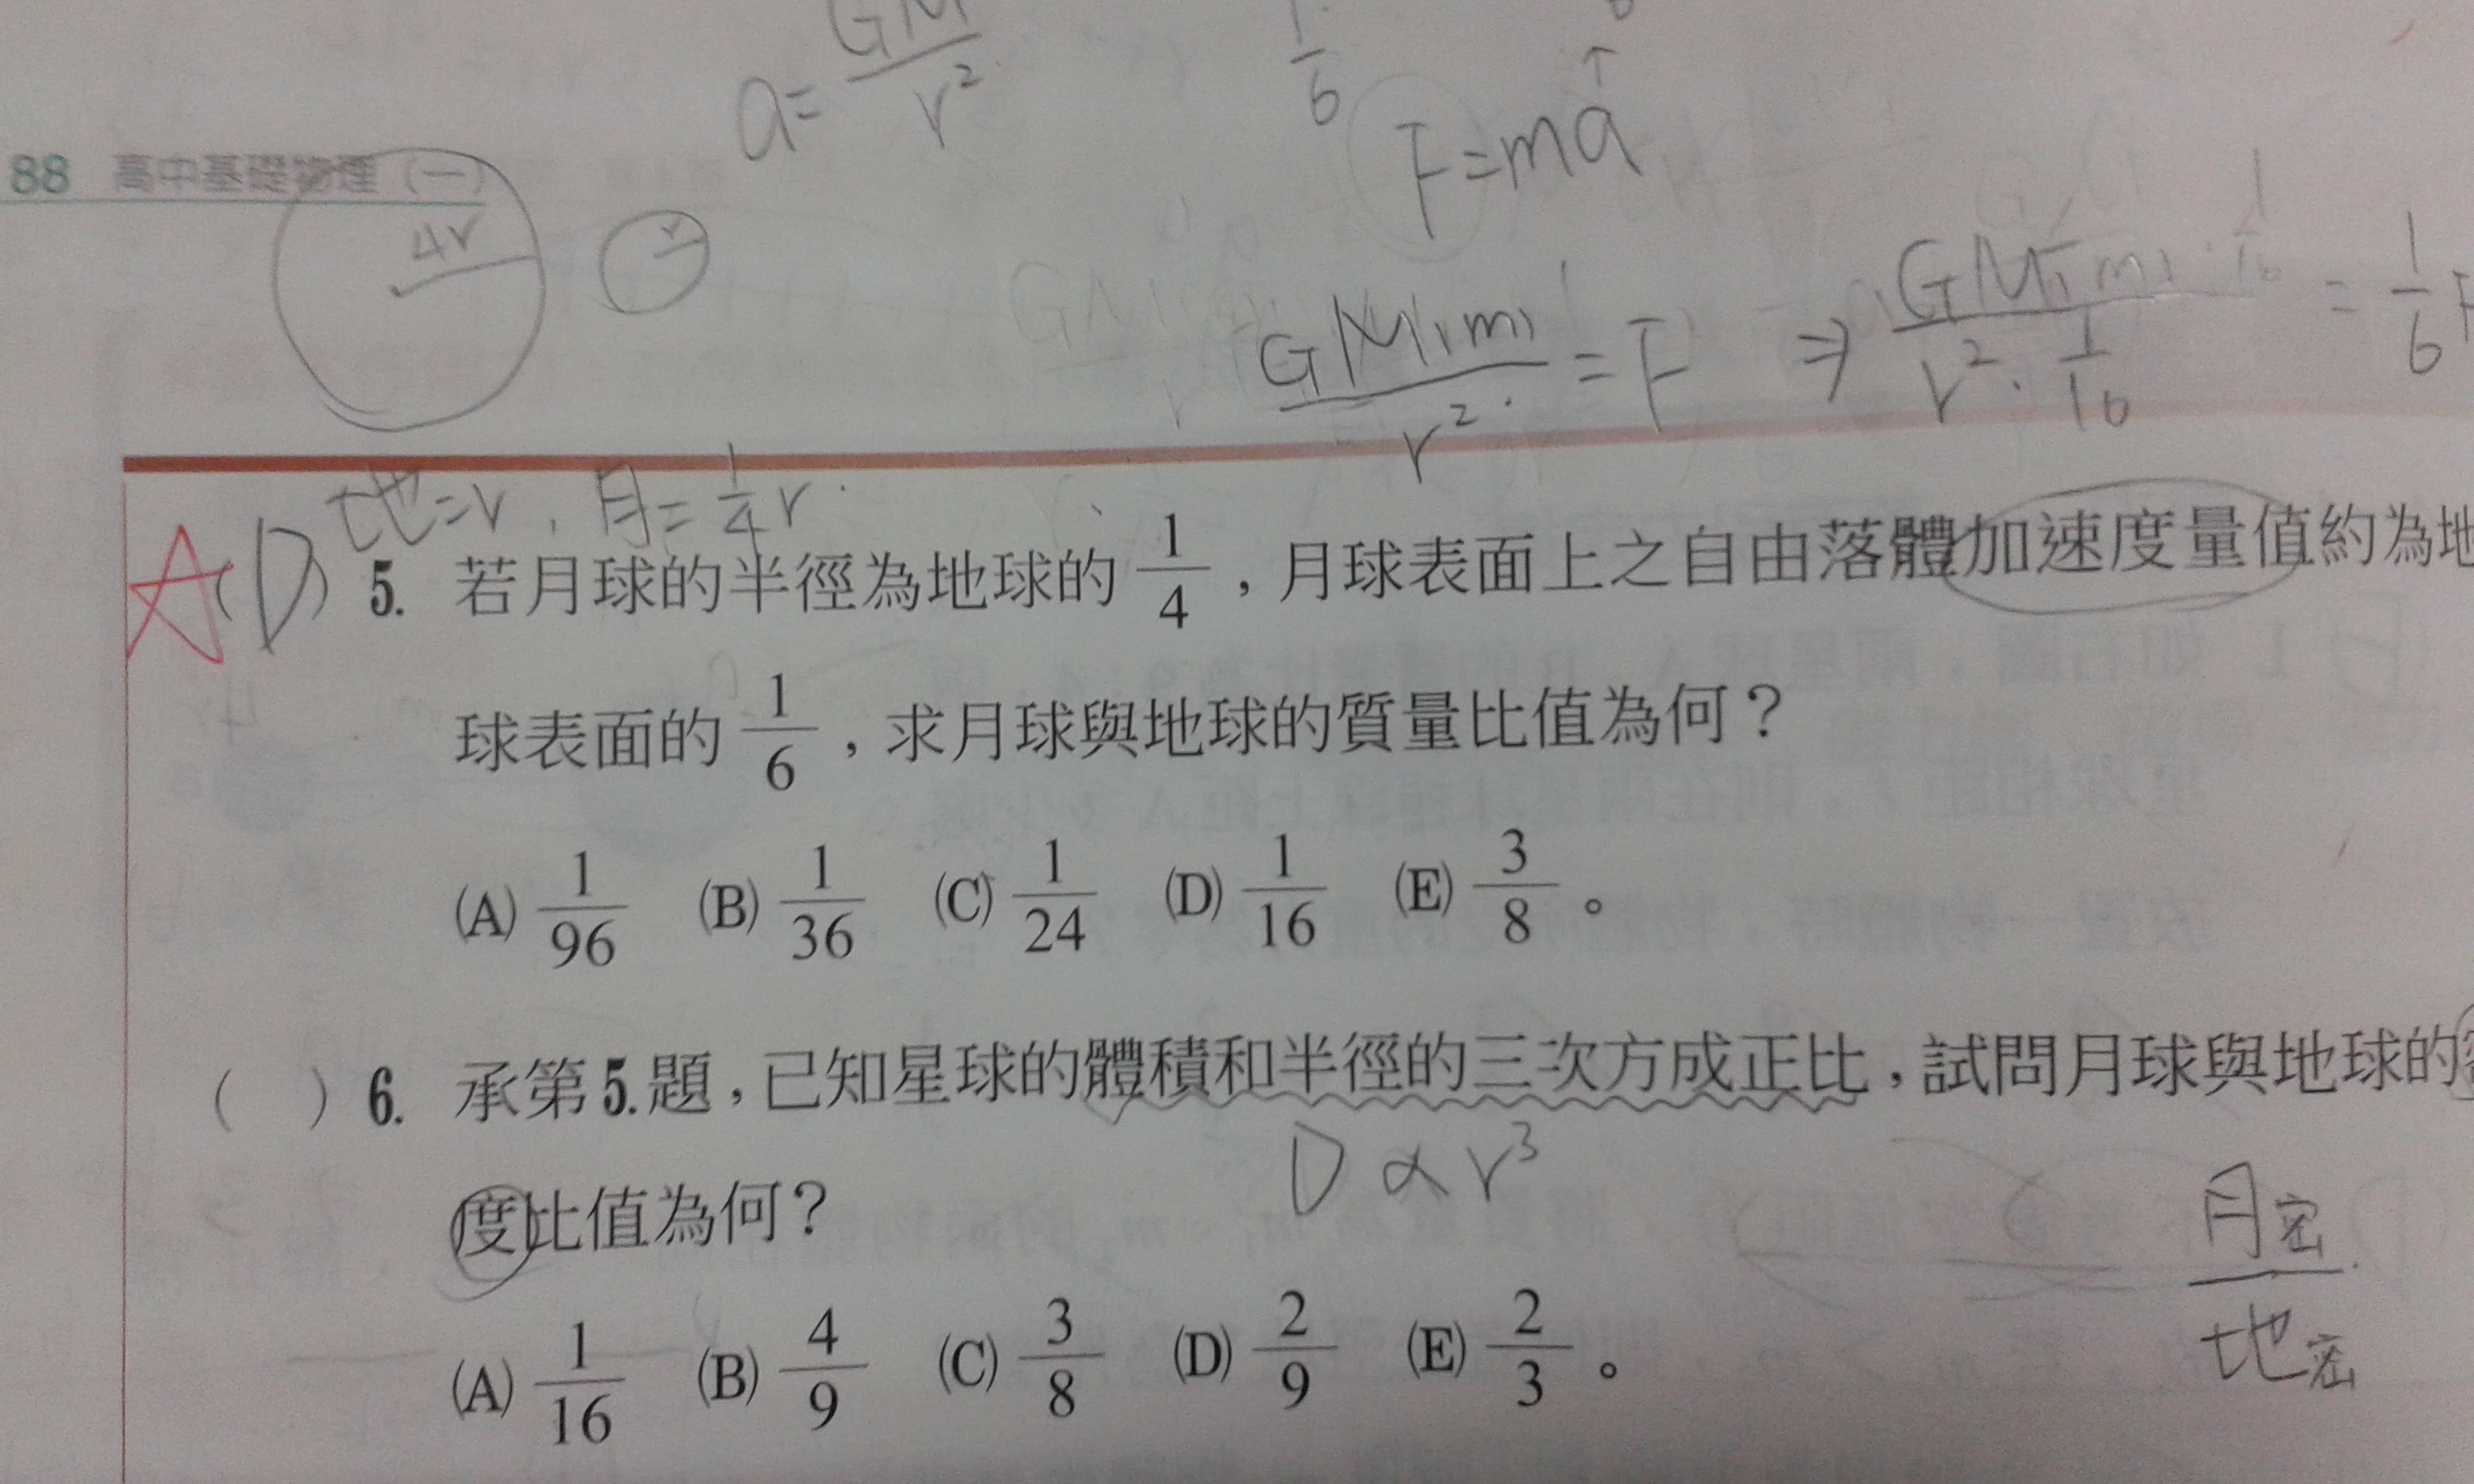 a=GM/r²
1/6
F=ma
88 高中基礎物理(一)
4r
r
GM₁m₁/r² = F ⇒ GM₁m₁·1/16 / r²·1/16 = 1/6 F
地=r, 月=1/4 r
(D) 5. 若月球的半徑為地球的 1/4,月球表面上之自由落體加速度量值約為地
球表面的 1/6,求月球與地球的質量比值為何?
(A) 1/96 (B) 1/36 (C) 1/24 (D) 1/16 (E) 3/8。
( ) 6. 承第5.題,已知星球的體積和半徑的三次方成正比,試問月球與地球的
D∝r³
度比值為何?
月密/地密
(A) 1/16 (B) 4/9 (C) 3/8 (D) 2/9 (E) 2/3。